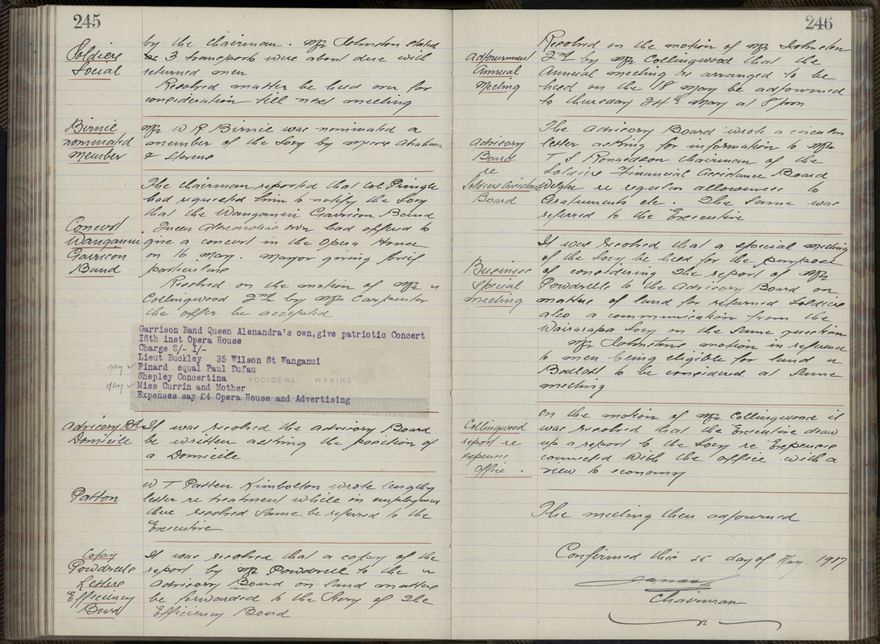 245
Soldiers
Social
by the Chairman. Mr Johnston stated
3 transports were about due with
returned men
Resolved matter be held over for
consideration till next meeting
Birnie
nominated
member
Mr W R Birnie was nominated a
member of the Socy by Messrs Abraham
& Stevens
Concert
Wanganui
Garrison
Band
The Chairman reported that Col Pringle
had requested him to notify the Socy
that the Wanganui Garrison Band
Queen Alexandras own had offered to
give a concert in the Opera House
on 16 May. Mayor giving brief
particulars
Resolved on the motion of Mr
Collingwood 2nd by Mr Carpenter
the offer be accepted
Garrison Band Queen Alenandra's own,give patriotic Concert
16th inst Opera House
Charge 2/- 1/-
Lieut Buckley 35 Wilson St Wanganui
Pinard equal Paul Dufau
Shepley Concertina
Miss Currin and Mother
Expenses say £4 Opera House and Advertising
Advisory Bd
Domicile
It was resolved the Advisory Board
be written asking the position of
a Domicile
Patton
W T Patten Kimbolton wrote lengthy
letter re treatment while in employment
there resolved same be referred to the
Executive
Copy
Powdrells
Letters
Efficiency
Board
It was resolved that a copy of the
report by Mr Powdrell to the
Advisory Board on land matters
be forwarded to the Secy of the
Efficiency Board
246
Adjournment
Annual
Meeting
Resolved on the motion of Mr Johnston
2nd by Mr Collingwood that the
Annual meeting be arranged to be
held on the 18 May be adjourned
to Thursday 24th May at 8 pm
Advisory
Board
re
Soldiers Assistance
Board
The Advisory Board wrote a circular
letter asking for information to Mr
T S Ronaldson Chairman of the
Soldiers Financial Assistance Board
Welgtn re request allowances to
etc. The same was
referred to the Executive
Business
Special
meeting
It was resolved that a special meeting
of the Socy be held for the purpose
of considering the report of Mr
Powdrells to the Advisory Board on
matters of land for returned soldiers
also a communication from the
Wairarapa Socy on the same question
Mr Johnstons motion in reference
to men being eligible for land
Ballott to be considered at same
meeting
Collingwood
report re
expenses
office.
On the motion of Mr Collingwood it
was resolved that the Executive draw
up a report to the Socy re Expenses
connected with the office with a
view to economy
The meeting then adjourned
Confirmed this 25 day of May 1917
Chairman